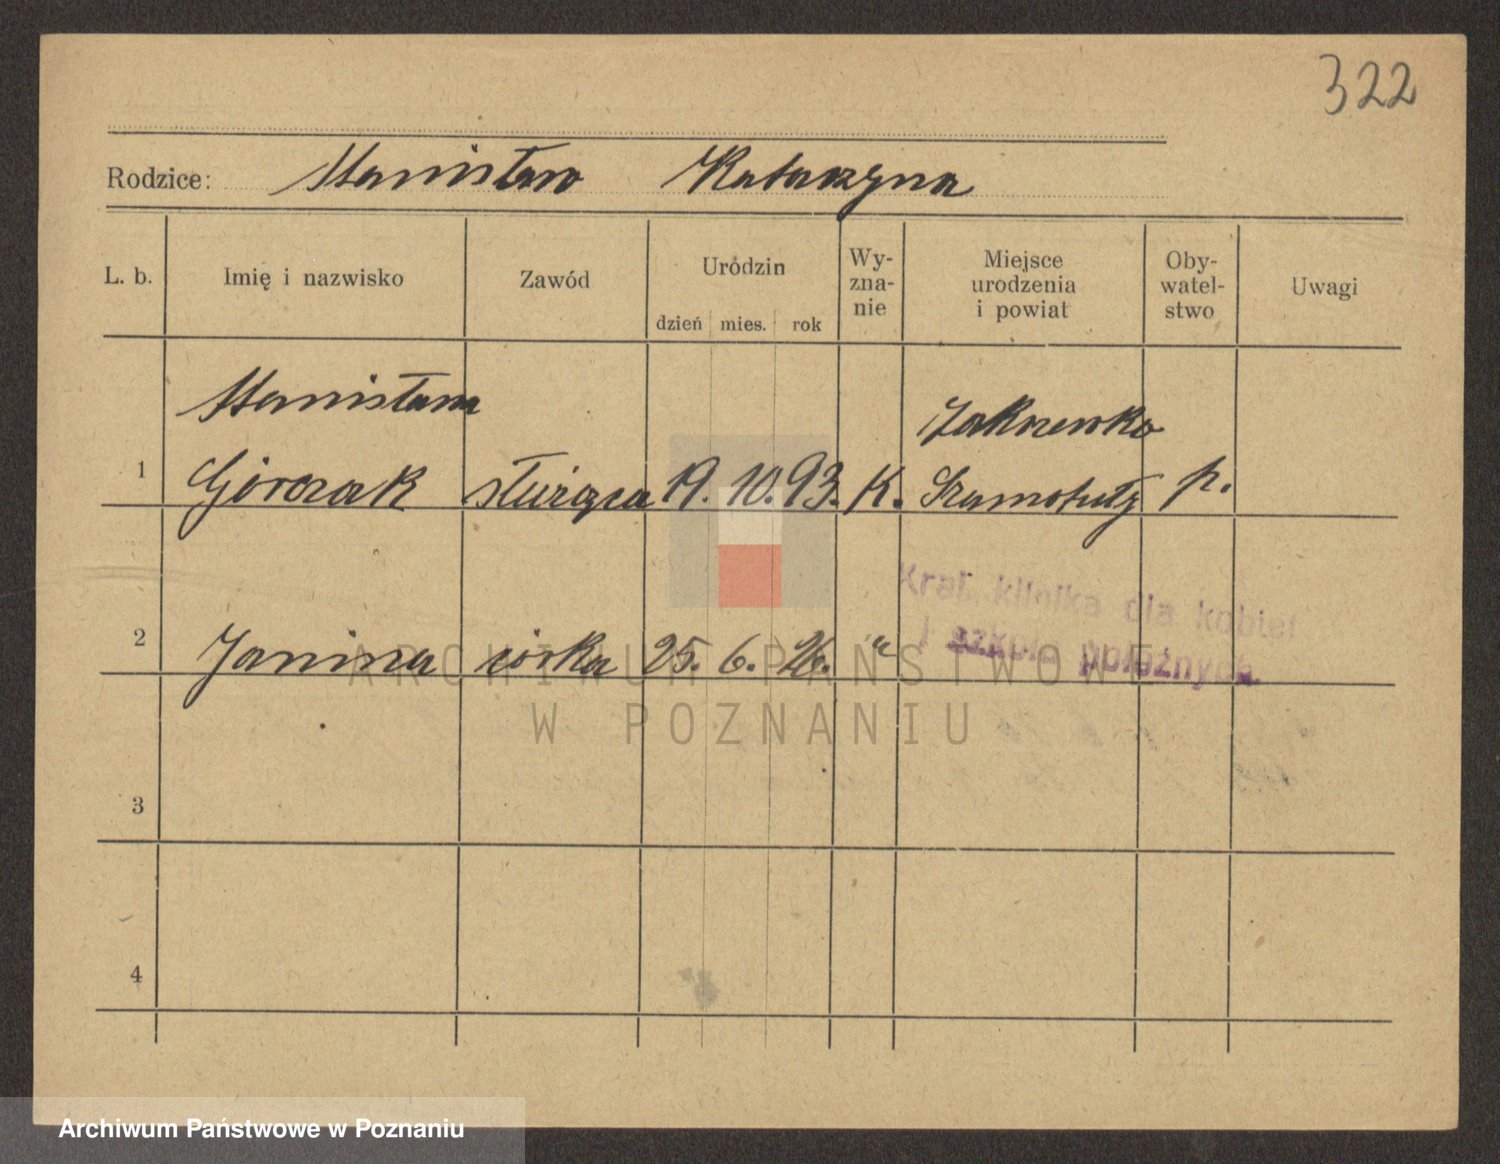 322
Rodzice: Stanisław Katarzyna
L. b. Imię i nazwisko Zawód Urodzin dzień mies. rok Wy-zna-nie Miejsce urodzenia i powiat Oby-watel-stwo Uwagi
Stanisława
1 Górczak służąca 19. 10. 93. K. Szamotuły p.
2 Janina córka 25. 6. 26. "
Kraj. klinika dla kobiet
i szkoła położnych.
3
4
ARCHIWUM PAŃSTWOWE
W POZNANIU
Archiwum Państwowe w Poznaniu